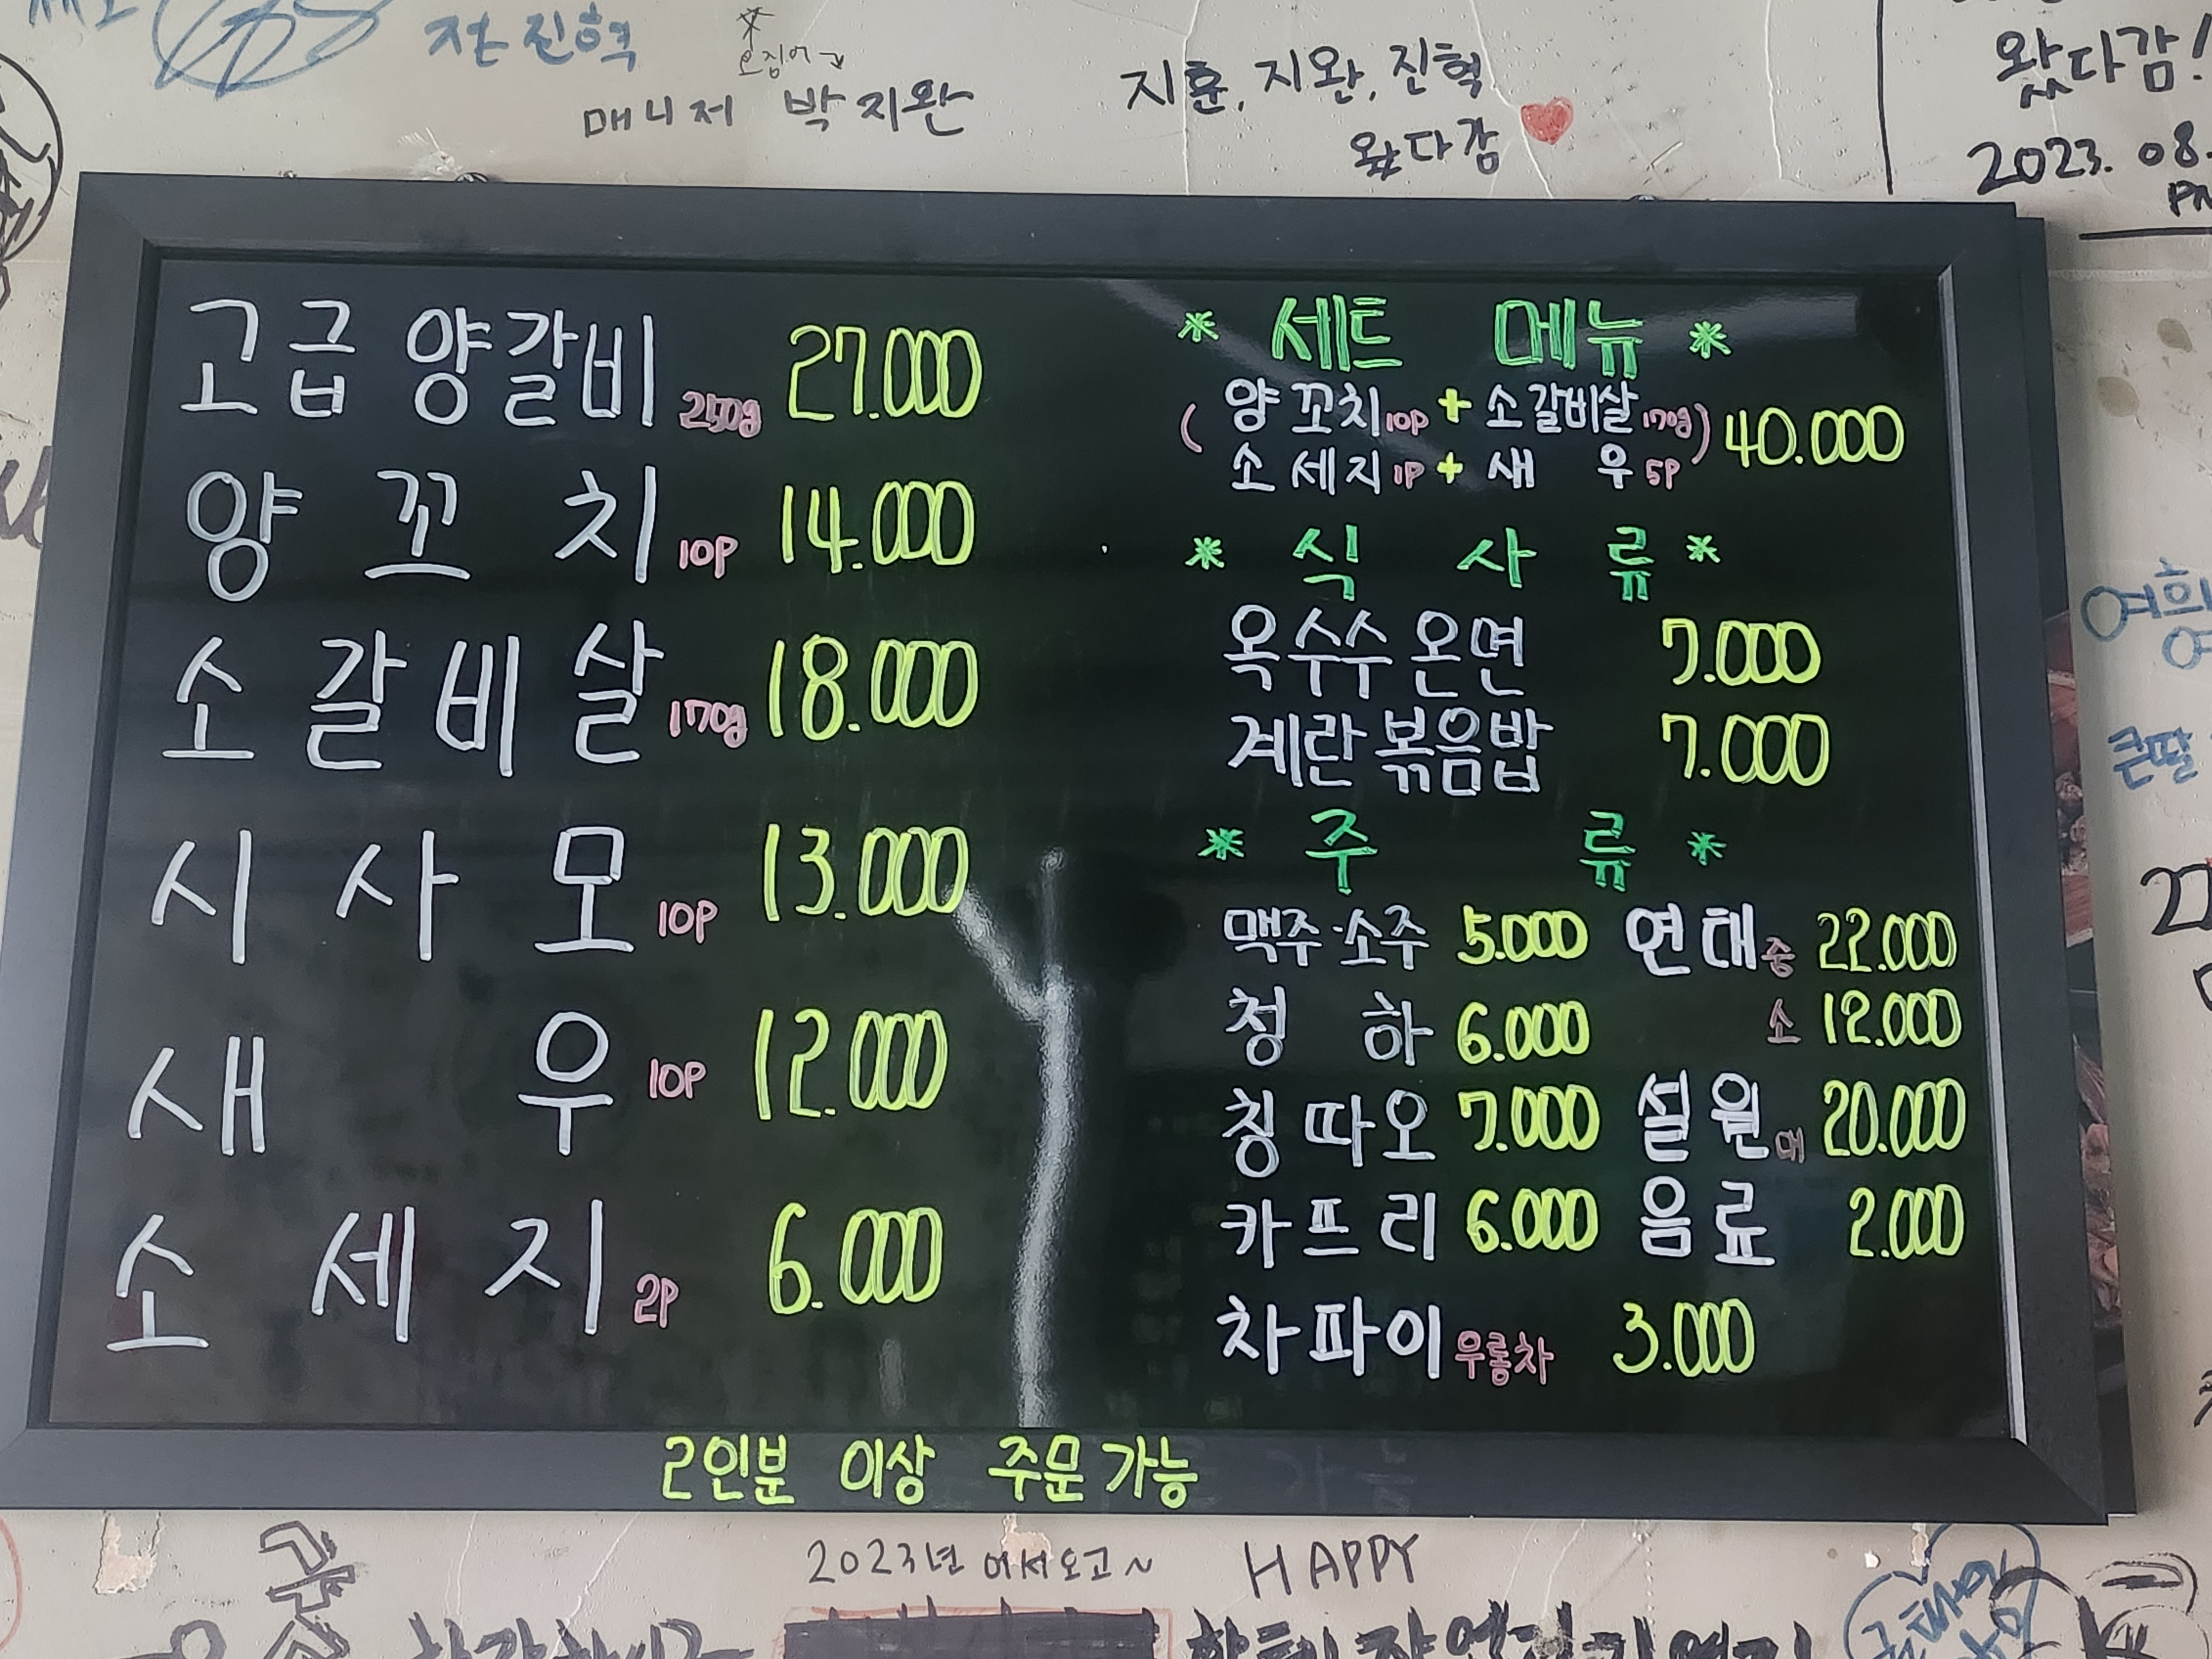 전진혁
오징어
매니저 박지완
지훈, 지완, 진혁
왔다감
왔다감!
2023. 08.
고급 양갈비 250g 27.000
양꼬치 10P 14.000
소갈비살 170g 18.000
시사모 10P 13.000
새우 10P 12.000
소세지 2P 6.000
* 세트 메뉴 *
( 양꼬치 10P + 소갈비살 170g ) 40.000
소세지 1P + 새우 5P
* 식사류 *
옥수수온면 7.000
계란볶음밥 7.000
* 주류 *
맥주·소주 5.000 연태 중 22.000
청하 6.000 소 12.000
칭따오 7.000 설원 대 20.000
카프리 6.000 음료 2.000
차파이 우롱차 3.000
2인분 이상 주문가능
여희
큰딸
2023년 어서오고~ HAPPY